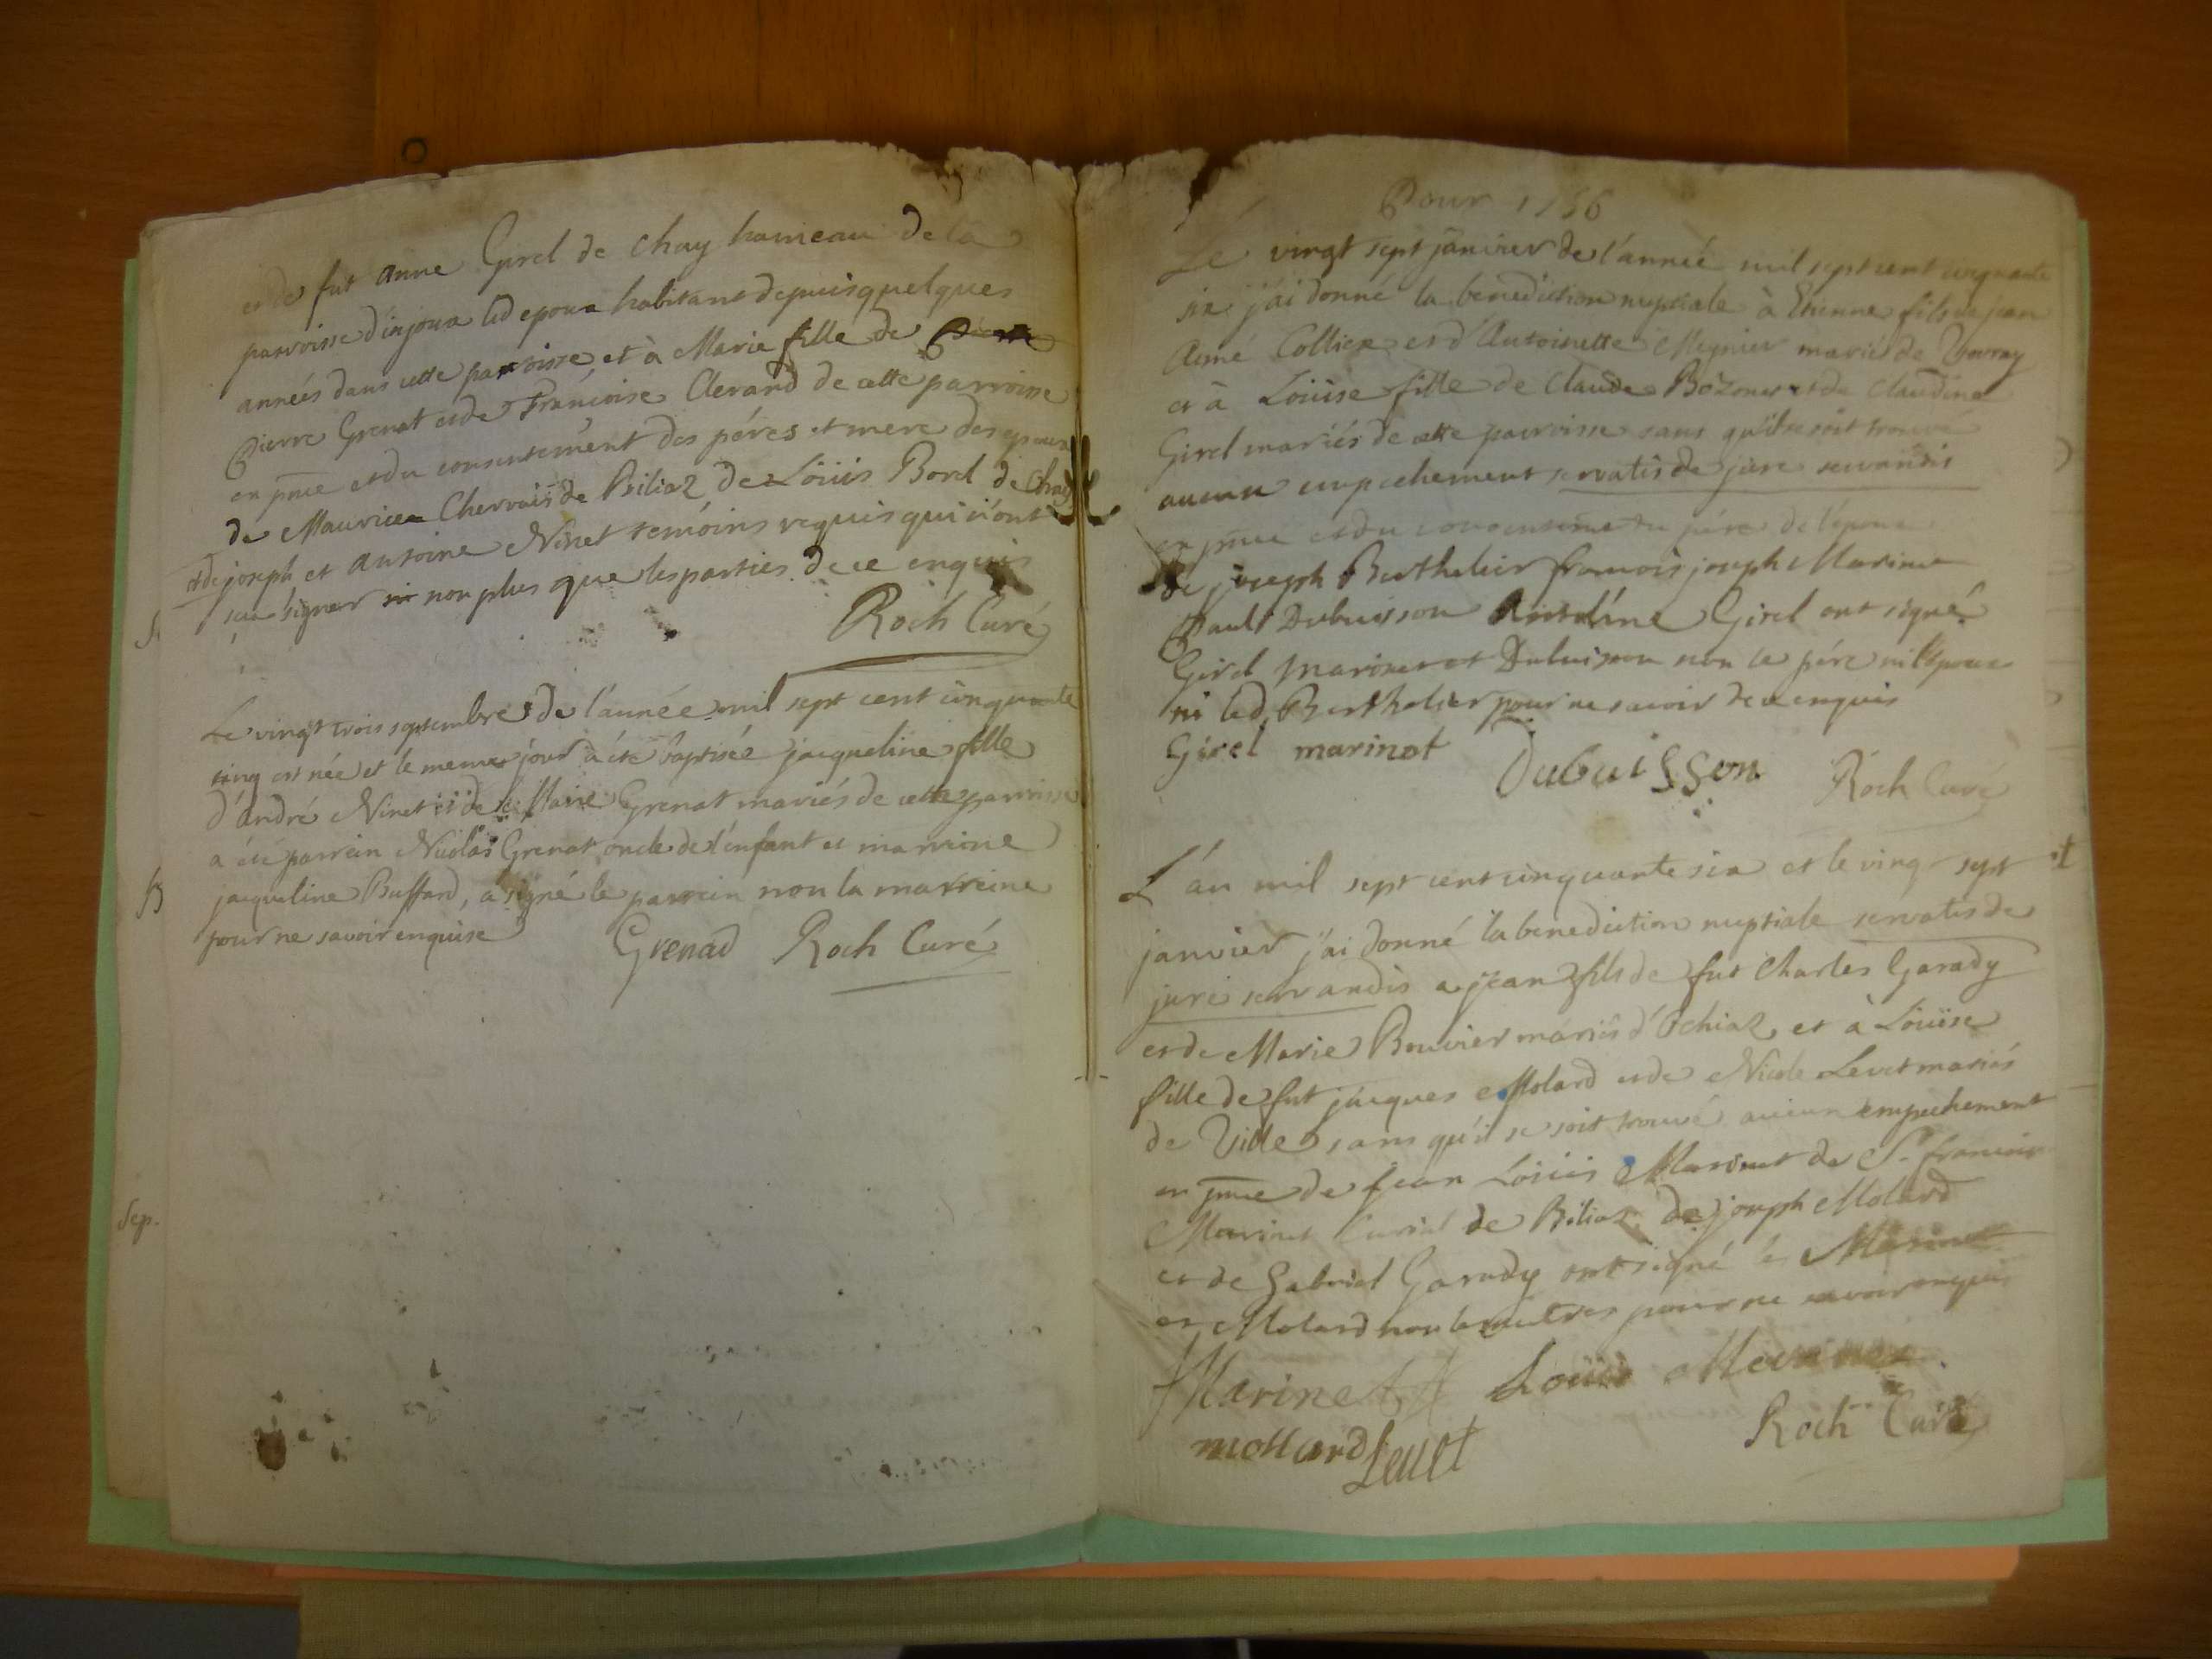 et de fut anne Girel de Chay hameau de la
parroisse d'injoux led epoux habitant depuis quelques
années dans cette parroisse, et à Marie fille de
Pierre Grenat et de Françoise Clerand de cette parroisse
en pnce et du consentement des péres et mere des epoux
de Maurice Chervais de Biliaz de Loüis Borel de Chay
et de joseph et antoine Ninet temoins requis qui n'ont
scu signer non plus que les parties de ce enquis
Roch Curé
Le vingt trois septembre de l'année mil sept cent cinquante
cinq est née et le meme jour a été baptisée jacqueline fille
d'andré Ninet et de Marie Grenat mariés de cette parroisse
a été parrein Nicolas Grenat oncle de l'enfant et marreine
jacqueline Buffard, a signé le parrein non la marreine
pour ne savoir enquise
Grenad Roch Curé
B
Sep.
Pour 1756
Le vingt sept janvier de l'année mil sept cent cinquante
six j'ai donné la benediction nuptiale à Etienne fils de jean
Aimé Collier et d'Antoinette Megnier mariés de Vovray
et à Loüise fille de Claude Bozonet et de Claudine
Girel mariés de cette parroisse sans qu'il se soit trouvé
aucun empechement servatis de jure servandis
en pnce et du consentemt du pére de l'épouse
de joseph Berthelier francois joseph Marinet
Paul Dubuisson Antoine Girel ont signé
Girel Marinet et Dubuisson non le pére ni l'epoux
ni led. Berthelier pour ne savoir de ce enquis
Girel marinot Dubuisson Roch Curé
L'an mil sept cent cinquante six et le vingt sept
janvier j'ai donné la benediction nuptiale servatis de
jure servandis a jean fils de fut Charles Garady
et de Marie Bouvier mariés d'Ochiaz, et à Loüise
fille de fut jacques Molard et de Nicole Levet mariés
de Ville sans qu'il se soit trouvé aucun empechement
en pnce de jean Loüis Marinet de Sr. francois
Marinet Curial de Biliaz, de joseph Molard
et de Gabriel Garady ont signé les Marinet
et Molard non les autres pour ne savoir enquis
Marinet Loüis Marinet
mollard Levet Roch Curé